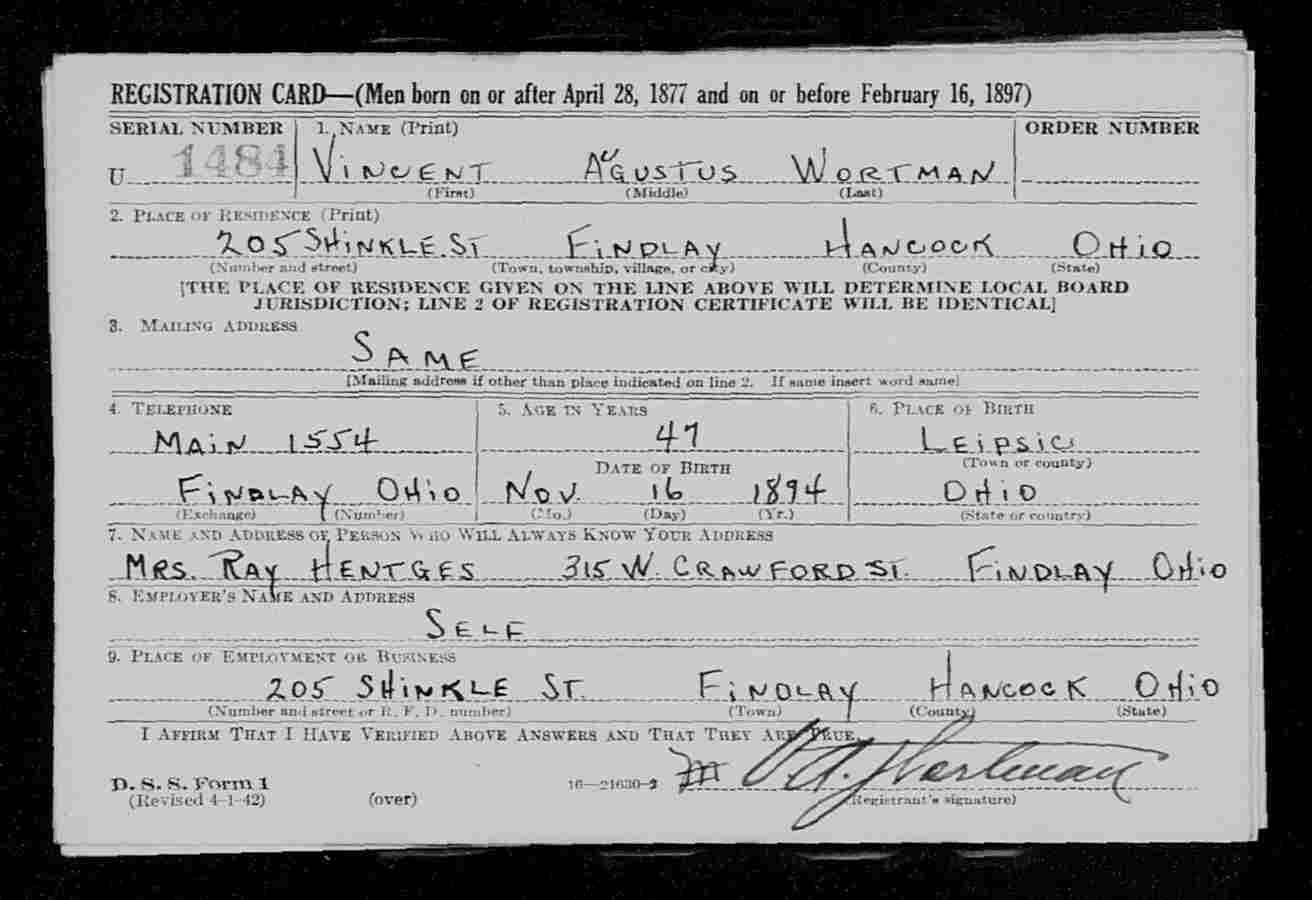 REGISTRATION CARD—(Men born on or after April 28, 1877 and on or before February 16, 1897)
SERIAL NUMBER 1. NAME (Print) ORDER NUMBER
U 1484 VINCENT AUGUSTUS WORTMAN
(First) (Middle) (Last)
2. PLACE OF RESIDENCE (Print)
205 SHINKLE. ST FINDLAY HANCOCK OHIO
(Number and street) (Town, township, village, or city) (County) (State)
[THE PLACE OF RESIDENCE GIVEN ON THE LINE ABOVE WILL DETERMINE LOCAL BOARD
JURISDICTION; LINE 2 OF REGISTRATION CERTIFICATE WILL BE IDENTICAL]
3. MAILING ADDRESS
SAME
[Mailing address if other than place indicated on line 2. If same insert word same]
4. TELEPHONE 5. AGE IN YEARS 6. PLACE OF BIRTH
MAIN 1554 47 LEIPSIC
DATE OF BIRTH (Town or county)
FINDLAY OHIO NOV. 16 1894 OHIO
(Exchange) (Number) (Mo.) (Day) (Yr.) (State or country)
7. NAME AND ADDRESS OF PERSON WHO WILL ALWAYS KNOW YOUR ADDRESS
MRS. RAY HENTGES 315 W. CRAWFORD ST. FINDLAY OHIO
8. EMPLOYER'S NAME AND ADDRESS
SELF
9. PLACE OF EMPLOYMENT OR BUSINESS
205 SHINKLE ST. FINDLAY HANCOCK OHIO
(Number and street or R. F. D. number) (Town) (County) (State)
I AFFIRM THAT I HAVE VERIFIED ABOVE ANSWERS AND THAT THEY ARE TRUE.
D. S. S. Form 1 16—21630-2 V A. Wortman
(Revised 4-1-42) (over) (Registrant's signature)